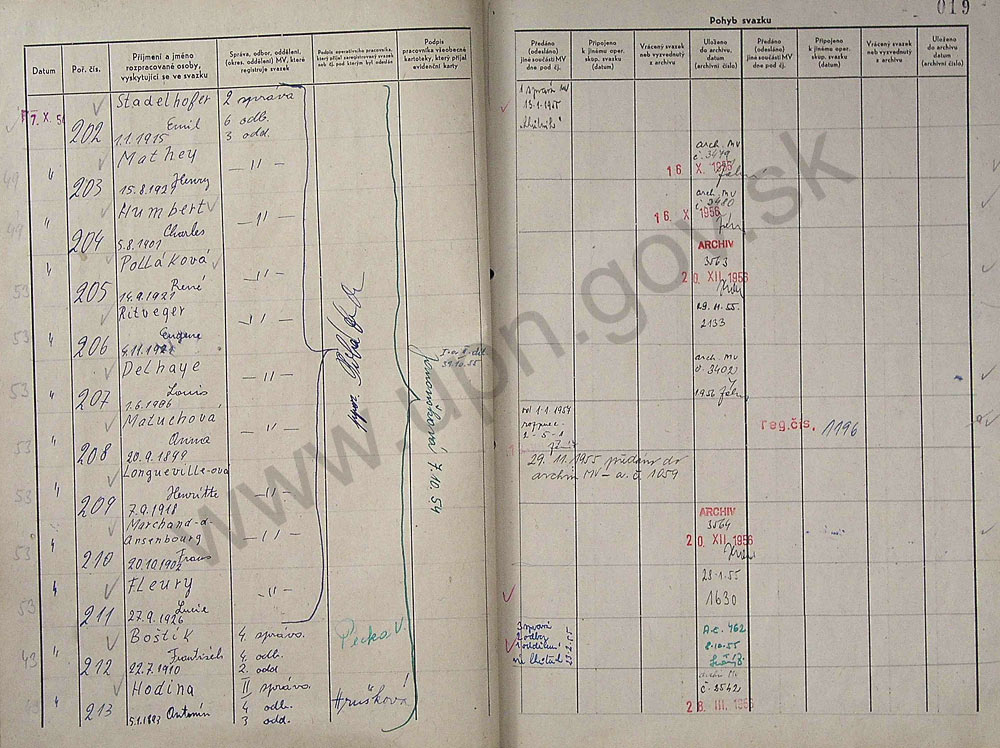 019
Pohyb svazku
Datum
Poř. čís.
Příjmení a jméno
rozpracované osoby,
vyskytující se ve svazku
Správa, odbor, oddělení,
(okres. oddělení) MV, které
registruje svazek
Podpis operativního pracovníka,
který přijal zaregistrovaný svazek
Podpis
pracovníka všeobecné
kartoteky, který přijal
evidenční karty
Předáno
(odesláno)
jiné součásti MV
dne pod čj.
Připojeno
k jinému oper.
skup. svazku
(datum)
Vrácený svazek
neb vyzvednutý
z archivu
Uloženo
do archivu,
datum
(archivní číslo)
Předáno
(odesláno)
jiné součásti MV
dne, pod čj.
Připojeno
k jinému oper.
skup. svazku
(datum)
Vrácený svazek
neb vyzvednutý
z archivu
Uloženo
do archivu
datum
(archivní číslo)
7. X. 54
202
Stadelhofer
Emil
1.1.1915
2 správa
6 odb.
3 odd.
1 správa MV
203
Mathey
Henry
15.8.1921
— 11 —
arch. MV
č. 3479
16. X. 1956
204
Humbert
Charles
5.8.1901
— 11 —
arch. MV
č. 3480
16. X 1956
205
Polláková
René
14.9.1921
— 11 —
ARCHIV
3563
20. XII. 1956
206
Ritveger
Eugene
— 11 —
29.11.55
2133
207
Delhaye
Louis
1.6.1906
— 11 —
arch. MV
č. 3402
1956
208
Matuchová
Anna
20.9.1899
— 11 —
od 1.1.1954
reg.čís. 1196
209
Longueville-ová
Henritte
7.9.1918
— 11 —
29. 11. 1955 předáno do
archivu MV – a. č. 1059
210
Marchand-d-
Ansenbourg
Frans
20.10.1902
— 11 —
ARCHIV
3564
20. XII. 1956
211
Fleury
Lucie
27.9.1926
— 11 —
23.1.55
1630
212
Boštík
František
22.7.1910
4. správa.
4. odb.
2. odd
Pecka V.
3 správa
2 odbor
A.č. 462
8.10.55
213
Hodina
Antonín
5.1.1893
II správa.
4 odb.
3 odd.
Hrušková
arch. MV
č. 3542
28. III. 1956
7.10.54
www.upn.gov.sk